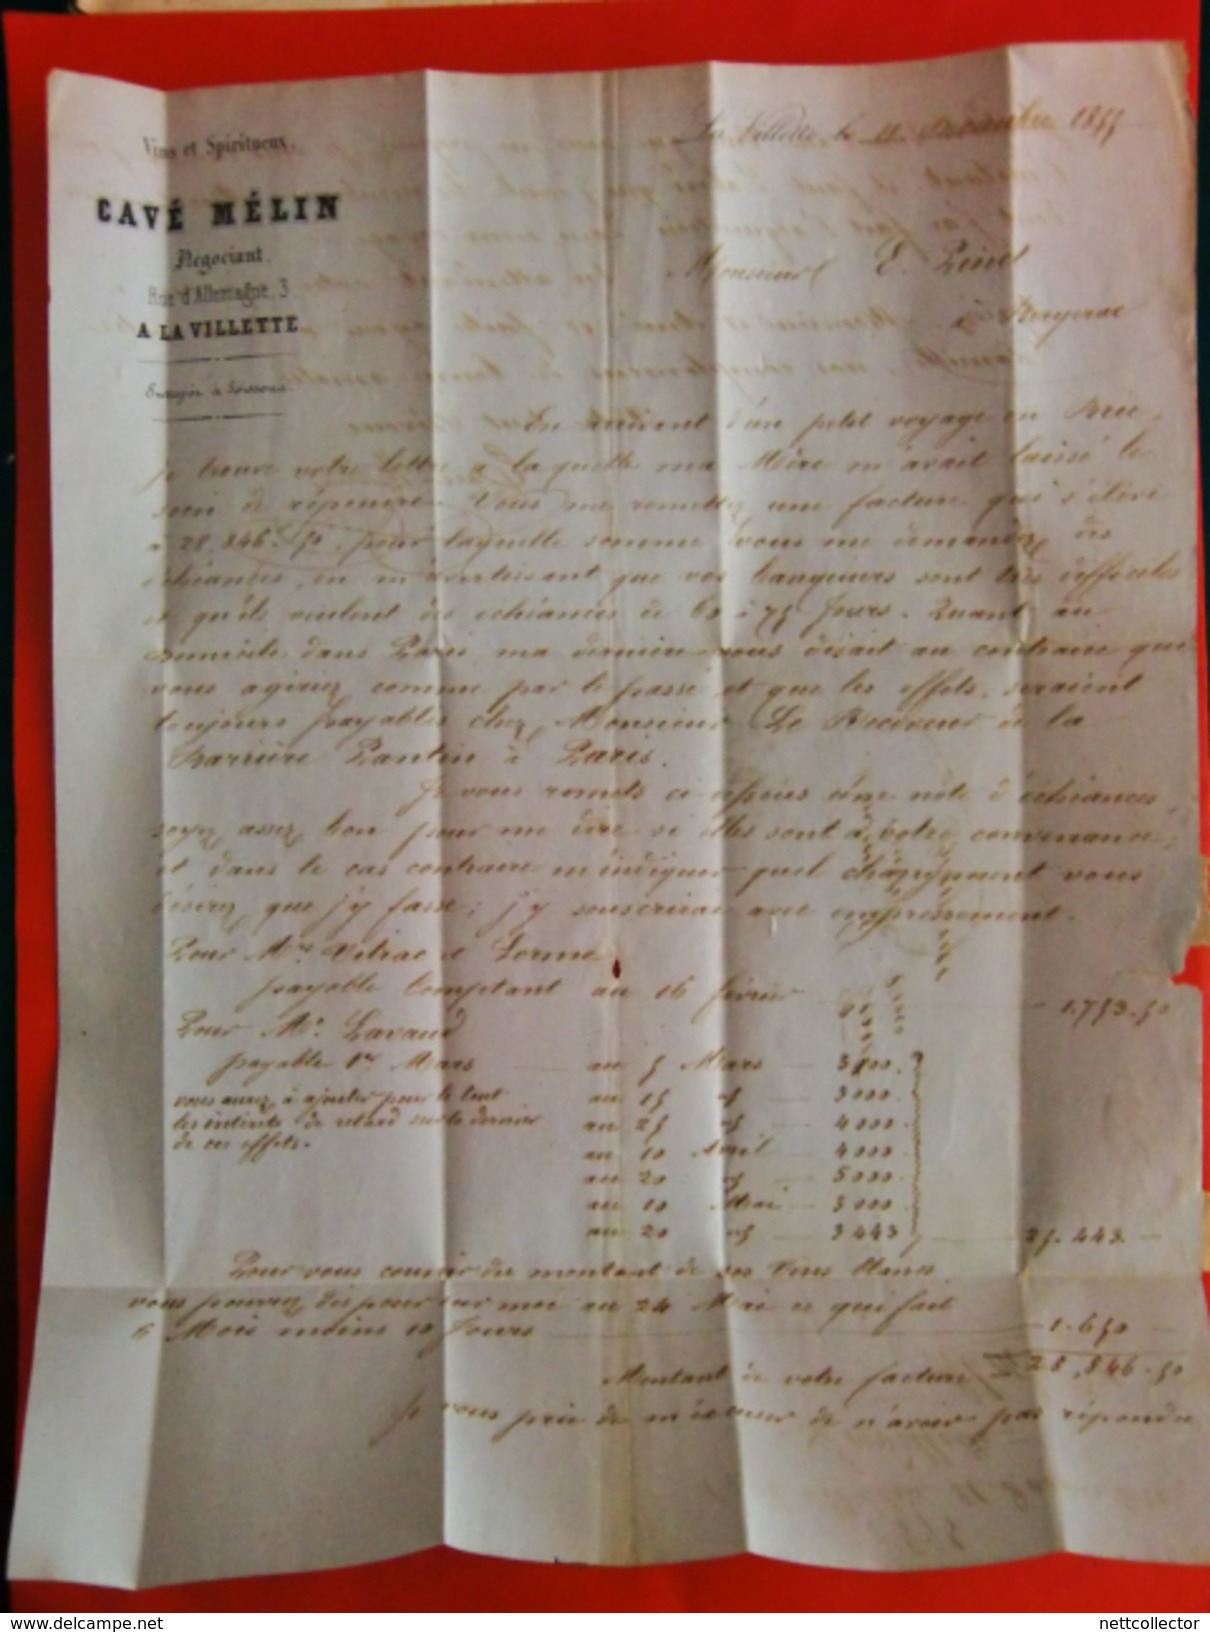 Vins et Spiritueux.
CAVÉ MÉLIN
Négociant.
Rue d'Allemagne, 3.
A LA VILLETTE
La Villette, le 1855
Monsieur E.
à Bergerac
En arrivant d'un petit voyage en Brie,
je trouve votre lettre a laquelle ma Mère m'avait laissé le
soin de répondre. Vous me remettez une facture qui s'élève
à 28.846.50, pour laquelle somme vous me demandez des
échéances, en m'avertissant que vos banquiers sont très difficiles
et qu'ils veulent des échéances de 60 à 75 Jours. Quant au
domicile dans Paris, ma dernière vous disait au contraire que
vous agiriez comme par le passé et que les effets seraient
toujours payables chez Monsieur Le Receveur de la
Barrière Pantin à Paris.
Je vous remets ci-dessous une note d'échéances,
soyez assez bon pour me dire si elles sont à votre convenance,
et dans le cas contraire m'indiquer quel changement vous
désirez que j'y fasse; j'y souscrirai avec empressement.
Pour Mrs Vitrac et
payable Comptant au 16 février 1.753.50
Pour Mr. Lavaud
payable 1er Mars au 5 Mars 3000.
vous aurez à ajouter pour le tout au 15 d° 3000.
les intérêts de retard sur le dernier au 25 d° 4000.
de ces effets. au 10 Avril 4000.
au 20 d° 5000
au 10 Mai 3000
au 20 d° 3443 25.443
Pour vous couvrir du montant de vos Vins blancs
vous pouvez disposer sur moi au 24 Mai ce qui fait
6 Mois moins 10 Jours 1.650
Montant de votre facture 28.846.50
Je vous prie de m'excuser de n'avoir pas répondu
www.delcampe.net
nettcollector